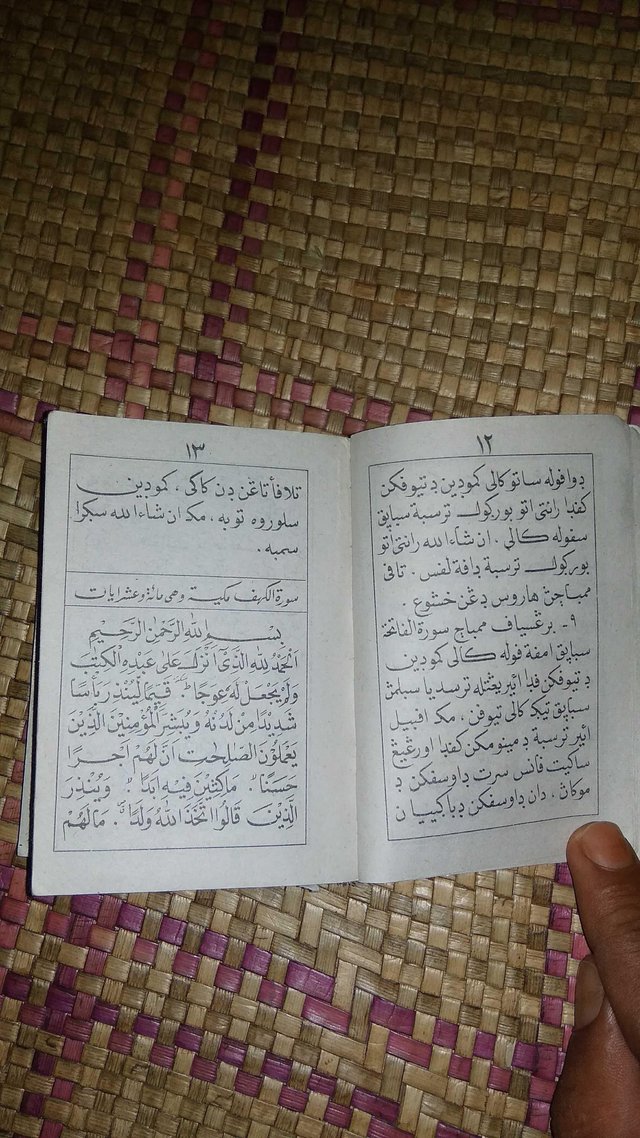 ١٢
دوا فوله ساتو كالي كمودين دتيوفكن
كفدا رانتى اتو بوركول ترسبة سباپق
سفوله كالي . ان شآء الله رانتى اتو
بوركول ترسبة دافة لفس . تافي
ممباچڽ هاروس دڠن خشوع .
٩- برڠسياف ممباچ سورة الفاتحة
سباپق امفة فوله كالى كمودين
دتيوفكن فدا ائير يڠتله ترسديا سبلمڽ
سباپق تيݢ كالى تيوفن . مك افبيل
ائير ترسبة دمينومكن كفدا اورڠيڠ
ساكيت فانس سرت داوسفكن د
موكاڽ . دان داوسفكن دباݢييان
١٣
تلافأ تاڠن دن كاكى . كمودين
سلوروه توبه ، مك ان شاء الله سݢرا
سمبه .
سورة الكهف مكية وهي مائة وعشر ايات
بِسْمِ اللهِ الرَّحْمٰنِ الرَّحِيْمِ
اَلْحَمْدُ لِلهِ الَّذِيْٓ اَنْزَلَ عَلٰى عَبْدِهِ الْكِتٰبَ
وَلَمْ يَجْعَلْ لَهٗ عِوَجًا ۜ قَيِّمًا لِيُنْذِرَ بَأْسًا
شَدِيْدًا مِنْ لَدُنْهُ وَيُبَشِّرَ الْمُؤْمِنِيْنَ الَّذِيْنَ
يَعْمَلُوْنَ الصّٰلِحٰتِ اَنَّ لَهُمْ اَجْرًا
حَسَنًا ۙ مَاكِثِيْنَ فِيْهِ اَبَدًا ۙ وَيُنْذِرَ
الَّذِيْنَ قَالُوا اتَّخَذَ اللهُ وَلَدًا ۗ مَا لَهُمْ